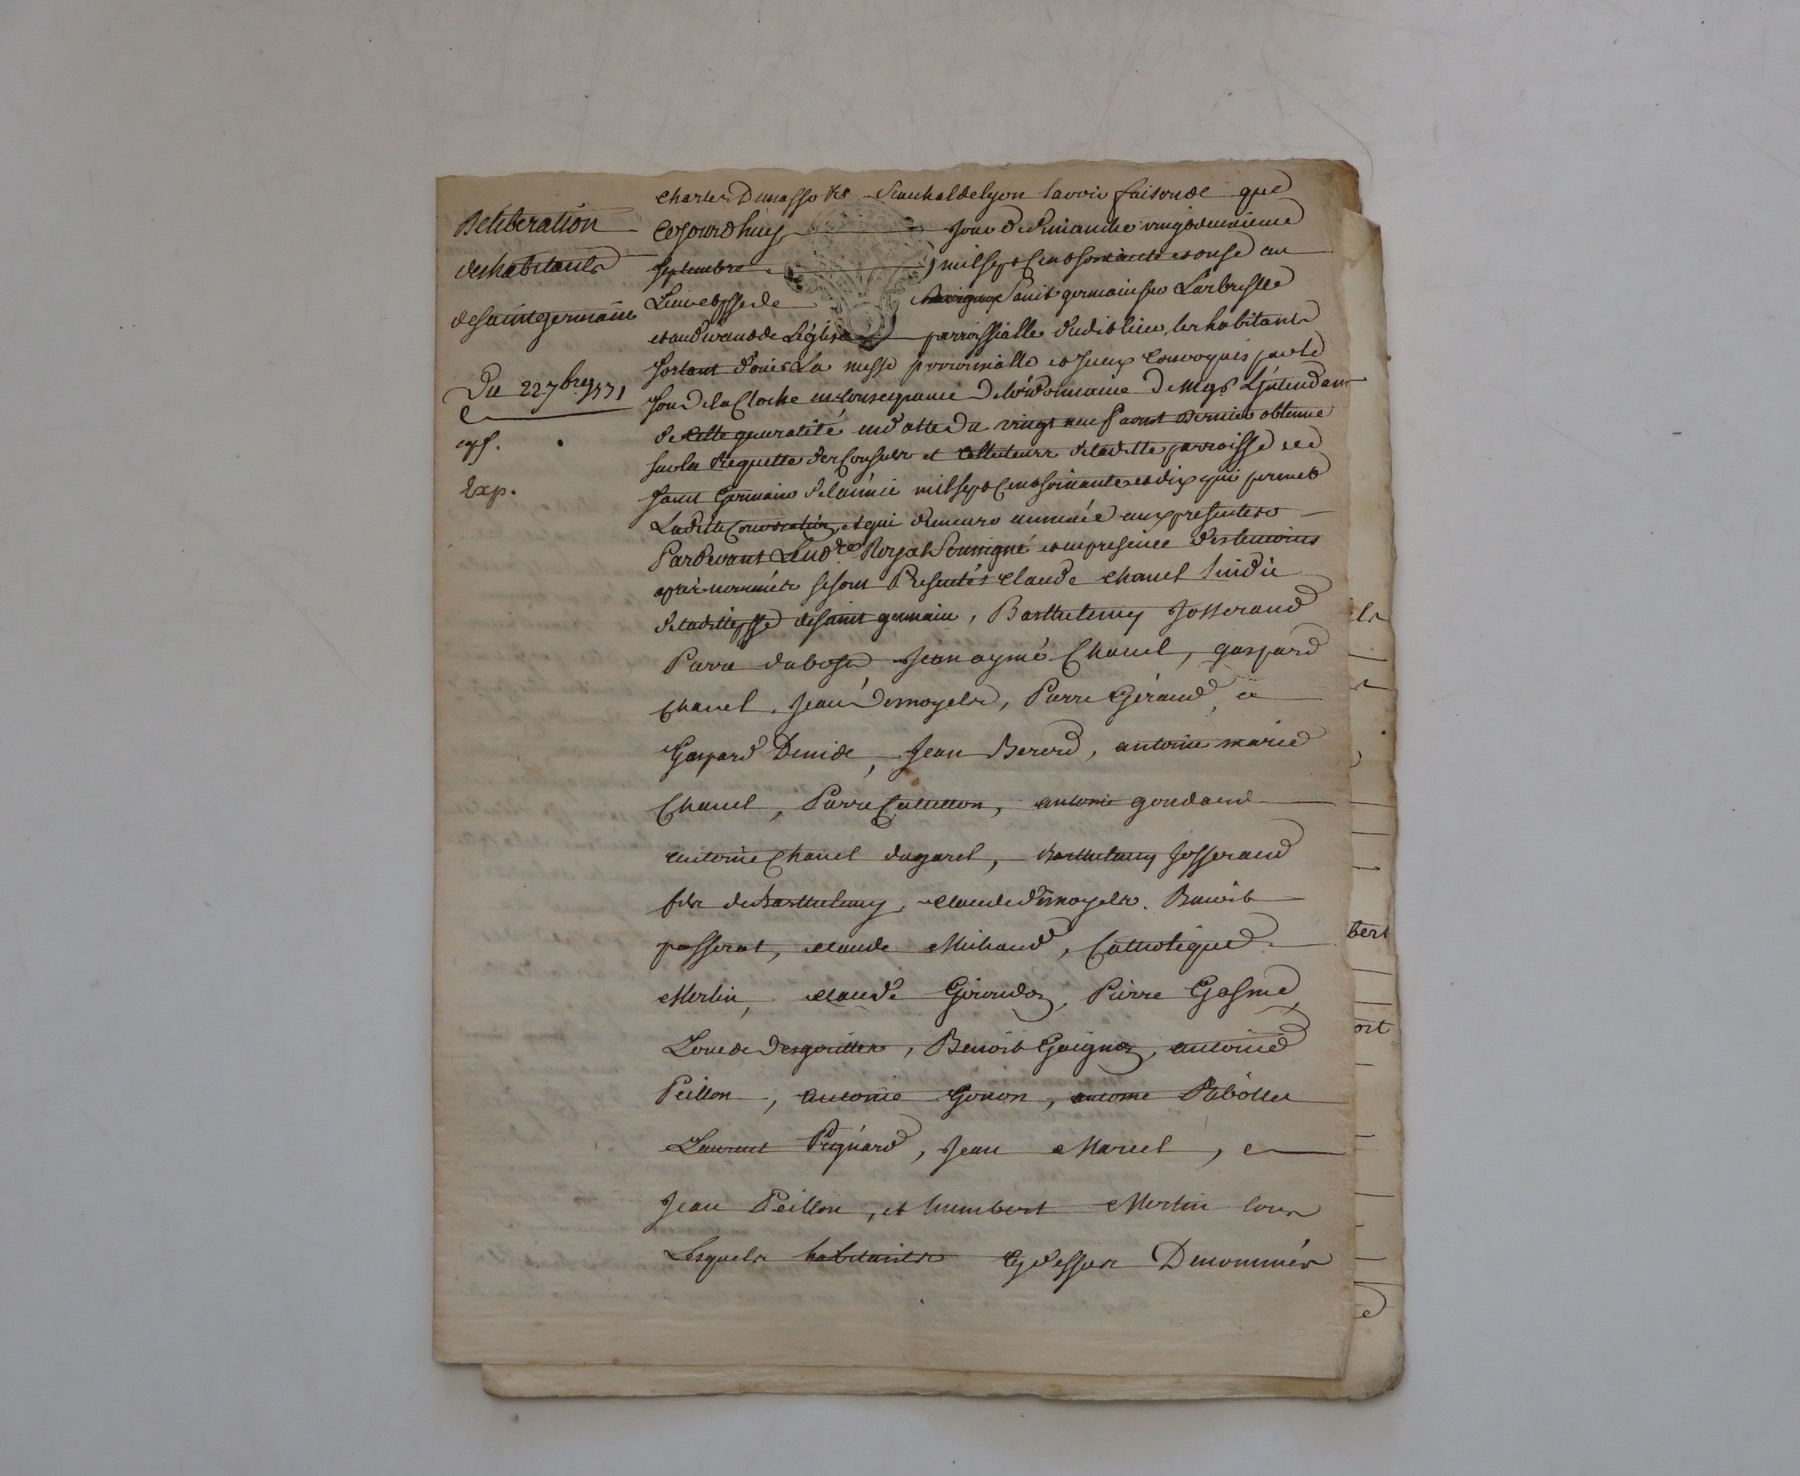 Deliberation
des habitants
de saint germain
Du 22 7bre 1771
Exp.
charles Demasso &c Senechal de lyon savoir faisons que
Cejourdhuy jour de dimanche vingt deuxieme
septembre mil sept cent soixante et onze au
Lieu et psse de Saint germain sur Larbresle
et au devant de L'église parroissialle dudit lieu, les habitants
sortant d'ouir La messe parroissialle et iceux convoqués par le
son de la Cloche en consequence de l'ordonnance de Mgr L'intendant
de cette generalité en datte du vingt neuf aoust dernier obtenue
sur la Requette des Consuls et Collecteurs de laditte parroisse de
saint Germain de l'année mil sept cent soixante et dix qui permet
Laditte Convocation, et qui demeure annexée aux presentes
Pardevant Le nore Royal Soussigné et en presence des temoins
après nommés se sont Presentés Claude Chanel sindic
de laditte psse de saint germain, Barthelemy Josserand
Pierre dubost Jean aymé Chanel, gaspard
Chanel, Jean Desmoyels, Pierre Géraud,
Gaspard Denis, Jean Bererd, antoine marie
Chanel, Pierre antoine goudard
antoine Chanel dugarel, Barthelemy Josserand
fils de Barthelemy, Claude Desmoyels, Benoit
passerat, Claude Michaud, Catholique
Merlin, Claude Girondon, Pierre Gasme,
Louis Desgouttes, Benoit Guignon, antoine
Peillon, antoine Gonon, antoine
Laurent Pignard, Jean Marcel,
Jean Peillon, et humbert Merlin tous
Lesquels habitants Cy dessus Denommés
bert
oit